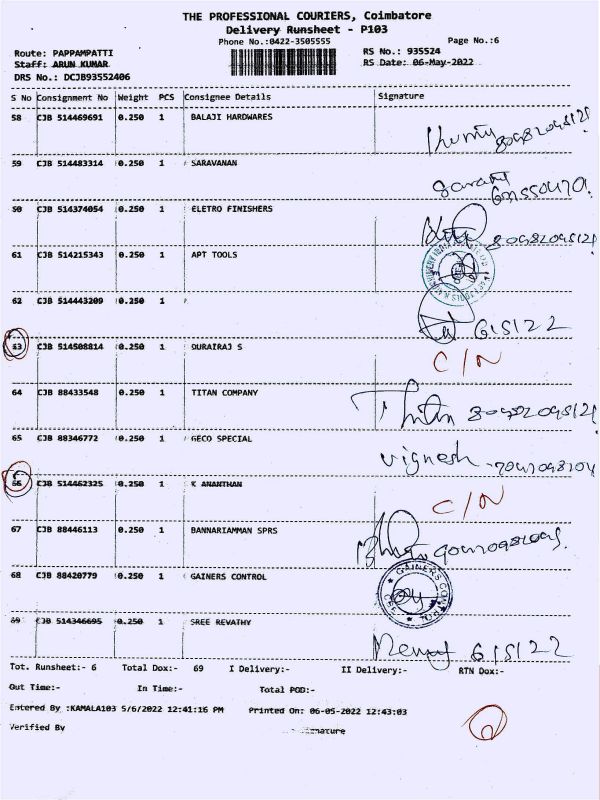 THE PROFESSIONAL COURIERS, Coimbatore
Delivery Runsheet - P103
Phone No.:0422-3505555 Page No.:6
Route: PAPPAMPATTI RS No.: 935524
Staff: ARUN KUMAR RS Date: 06-May-2022
DRS No.: DCJB93552406
S No Consignment No Weight PCS Consignee Details Signature
58 CJB 514469691 0.250 1 BALAJI HARDWARES
59 CJB 514483314 0.250 1 SARAVANAN
60 CJB 514374054 0.250 1 ELETRO FINISHERS
61 CJB 514215343 0.250 1 APT TOOLS
62 CJB 514443209 0.250 1
6/5/22
63 CJB 514508814 0.250 1 DURAIRAJ S
C/N
64 CJB 88433548 0.250 1 TITAN COMPANY
65 CJB 88346772 0.250 1 GECO SPECIAL
vignesh
66 CJB 514462325 0.250 1 K ANANTHAN
C/N
67 CJB 88446113 0.250 1 BANNARIAMMAN SPRS
68 CJB 88420779 0.250 1 GAINERS CONTROL
GAINERS CONTROL
69 CJB 514346695 0.250 1 SREE REVATHY
6/5/22
Tot. Runsheet:- 6 Total Dox:- 69 I Delivery:- II Delivery:- RTN Dox:-
Out Time:- In Time:- Total POD:-
Entered By :KAMALA103 5/6/2022 12:41:16 PM Printed On: 06-05-2022 12:43:03
Verified By Signature